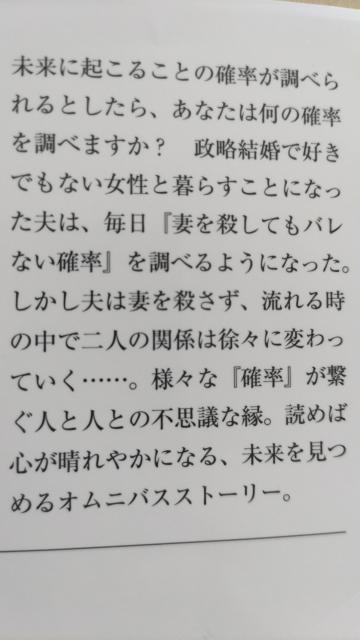 未来に起こることの確率が調べら
れるとしたら、あなたは何の確率
を調べますか？　政略結婚で好き
でもない女性と暮らすことになっ
た夫は、毎日『妻を殺してもバレ
ない確率』を調べるようになった。
しかし夫は妻を殺さず、流れる時
の中で二人の関係は徐々に変わっ
ていく……。様々な『確率』が繋
ぐ人と人との不思議な縁。読めば
心が晴れやかになる、未来を見つ
めるオムニバスストーリー。